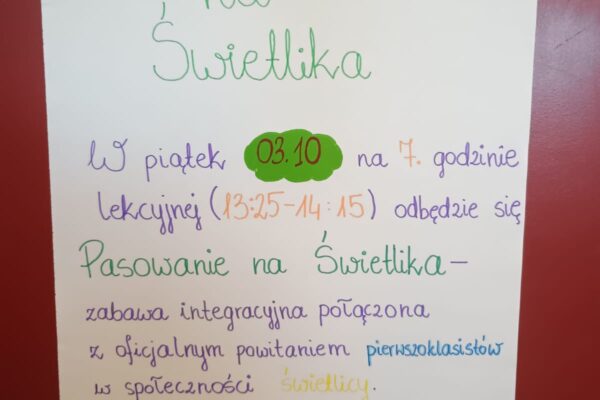 na
Świetlika
W piątek 03.10 na 7. godzinie
lekcyjnej (13:25-14:15) odbędzie się
Pasowanie na Świetlika-
zabawa integracyjna połączona
z oficjalnym powitaniem pierwszoklasistów
w społeczności świetlicy.